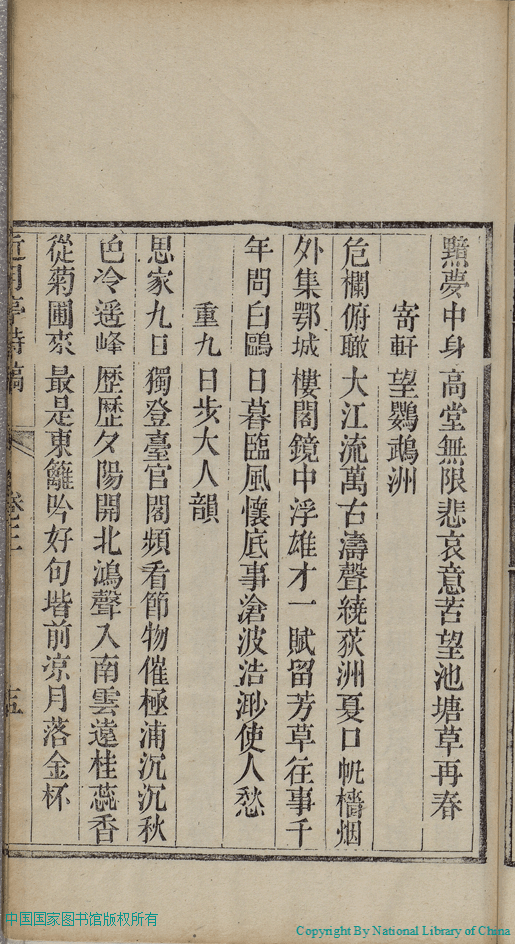 黯夢中身高堂無限悲哀意苦望池塘草再春
寄軒望鸚鵡洲
危欄俯瞰大江流萬古濤聲繞荻洲夏口帆檣烟
外集鄂城樓閣鏡中浮雄才一賦留芳草往事千
年問白鷗日暮臨風懷底事滄波浩渺使人愁
重九日步大人韻
思家九日獨登臺官閣頻看節物催極浦沉沉秋
色冷遥峰歷歷夕陽開北鴻聲入南雲遠桂蕊香
從菊圃來最是東籬吟好句堦前凉月落金杯
亭詩稿 卷二 五
中国国家图书馆版权所有
Copyright By National Library of China